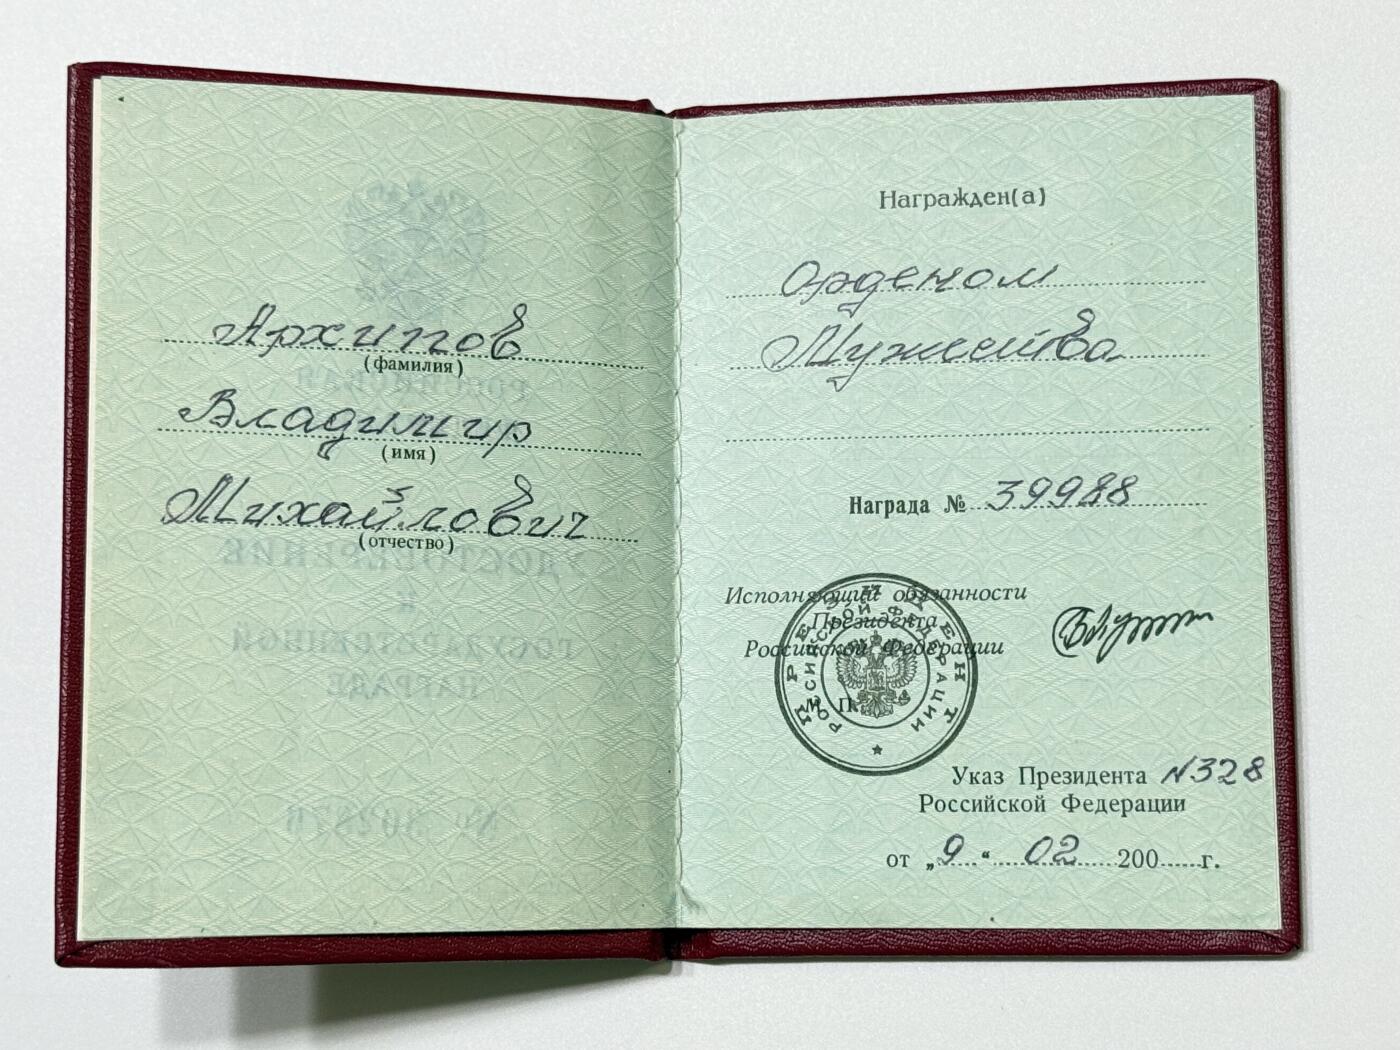 Архипов
(фамилия)
Владимир
(имя)
Михайлович
(отчество)
УДОСТОВЕРЕНИЕ
К
ГОСУДАРСТВЕННОЙ
НАГРАДЕ
Награжден(а)
Орденом
Мужества
Награда № 39988
Исполняющий обязанности
Президента
Российской Федерации
М. П.
ПРЕЗИДЕНТ
РОССИЙСКОЙ ФЕДЕРАЦИИ
Указ Президента N328
Российской Федерации
от „9“ 02 200 г.